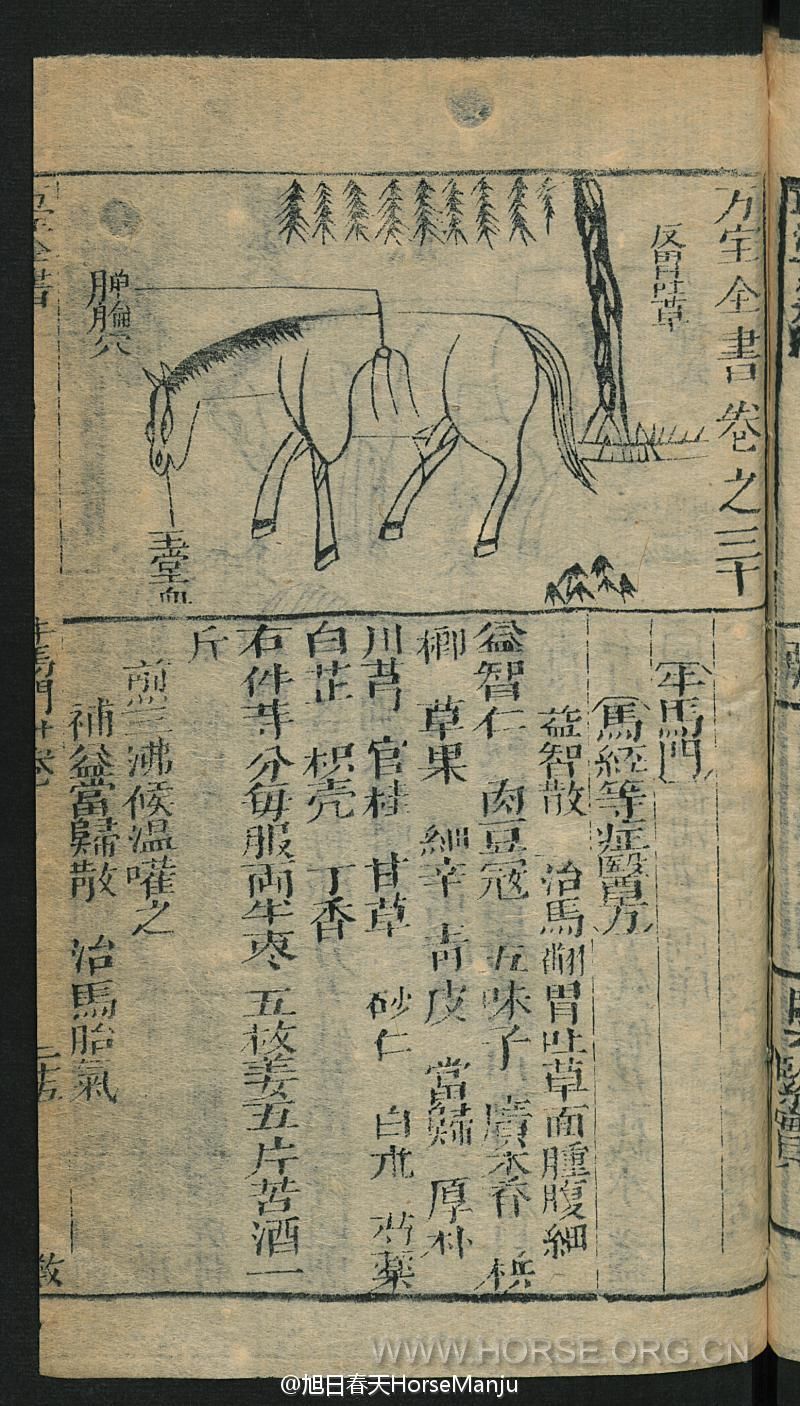 万宝全書卷之三十
反胃吐草
脾腧穴
玉堂血
牛馬門
馬經等症醫方
益智散 治馬翻胃吐草面腫腹細
益智仁 肉豆冠 五味子 廣木香 檳
榔 草果 細辛 青皮 當歸 厚朴
川芎 官桂 甘草 砂仁 白朮 芍藥
白芷 枳壳 丁香
右件等分每服兩半枣五枚姜五片苦酒一
斤
煎三沸候温嚾之
補益當歸散 治馬胎氣
WWW.HORSE.ORG.CN
@旭日春天HorseManju